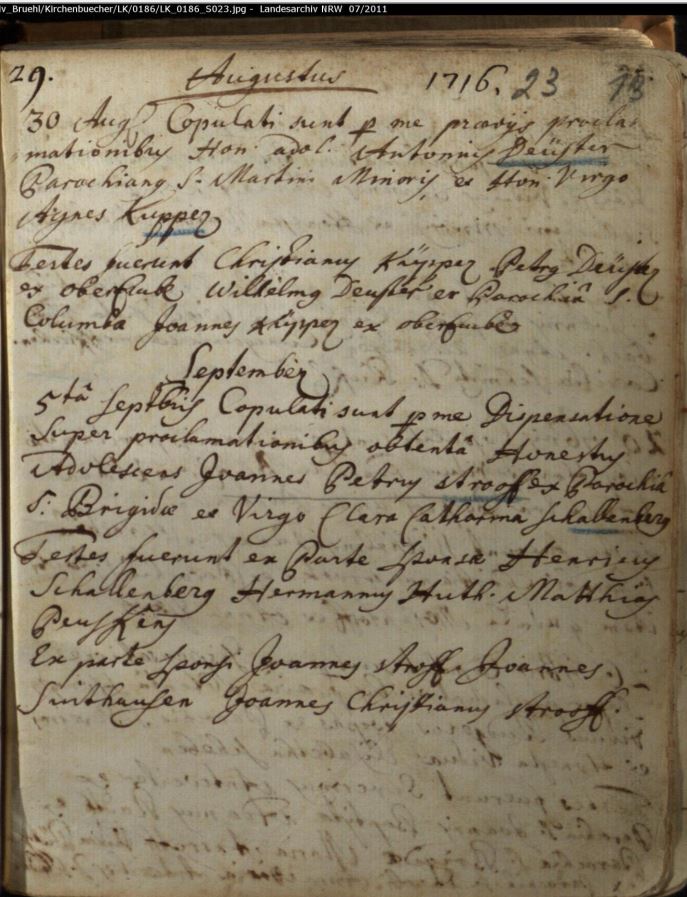 lv_Bruehl/Kirchenbuecher/LK/0186/LK_0186_S023.jpg - Landesarchiv NRW 07/2011
29. Augustus 1716. 23 13
30 Aug Copulati sunt p me prævijs procla-
mationibus Hon. adol. Antonius Deüster
Parochianus S. Martini Minoris et Hon. Virgo
Agnes Küpper
Testes fuerunt Christianus Küpper Petrus Deüster
ex Wilhelmus Deuster ex Parochiâ S.
Columba Joannes Küpper ex
September
5tâ Septbris Copulati sunt p me Dispensatione
Super proclamationibus obtentâ Honestus
Adolescens Joannes Petrus strooff ex Parochiâ
S. Brigidæ et Virgo Clara Catharina Schallenberg
Testes fuerunt ex Parte sponsæ Henricus
Schallenberg Hermannus Huth. Matthias
Peuskens
Ex parte sponsi Joannes stroff. Joannes
Sinthausen Joannes Christianus strooff.